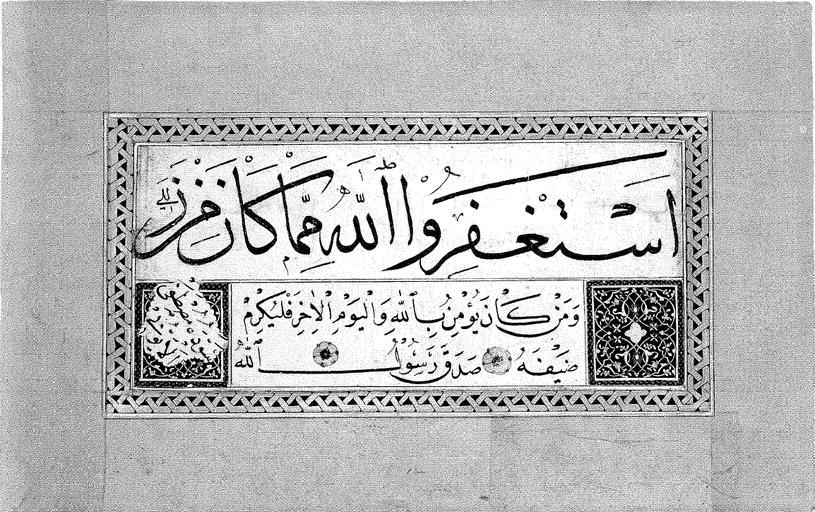 استغفروا الله مما كان من زللي
ومن كان يؤمن بالله واليوم الاخر فليكرم
ضيفه صدق رسول الله